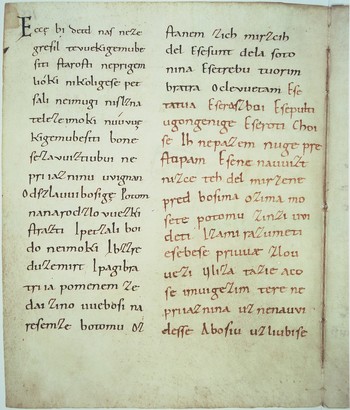 Ecce bi detd naſ neze
greſil tevuekigemube
ſiti ſtaroſti neprigem
lióki nikoligeſe pet
ſali neimugi niſlzna
teleze imoki nuúvue
kigemubeſiti bone
ſezavuiztiubui ne
priiazninu uvignan
Odszlauuibosige Potom
nanarodzlovuezki
ſtrazti Ipetzali boi
do neimoki Ibzzre
duzemirt Ipagibra
triia pomenem ze
dai zino uuebosi na
resenze botomu oz
ſtanem zich mirzcih
del Eſeſunt dela ſoto
nina Eſetrebu tuorim
bratra Oclevuetam Eſe
tatua Eſerazboi Eſepulti
ugongenige Eſeroti Choi
ſe Ih nepazem nuge pre
ſtopam Eſene nauuizt
nizce teh del mirzene
pred bosima ozima mo
ſete potomu zinzi uvi
deti Izami razumeti
eſebeſe priuuae zlou
uezi Uliza tazie aco
ſe imuigezim tere ne
priiaznina uznenauvi
desſe Aboſiu uzliubiſe